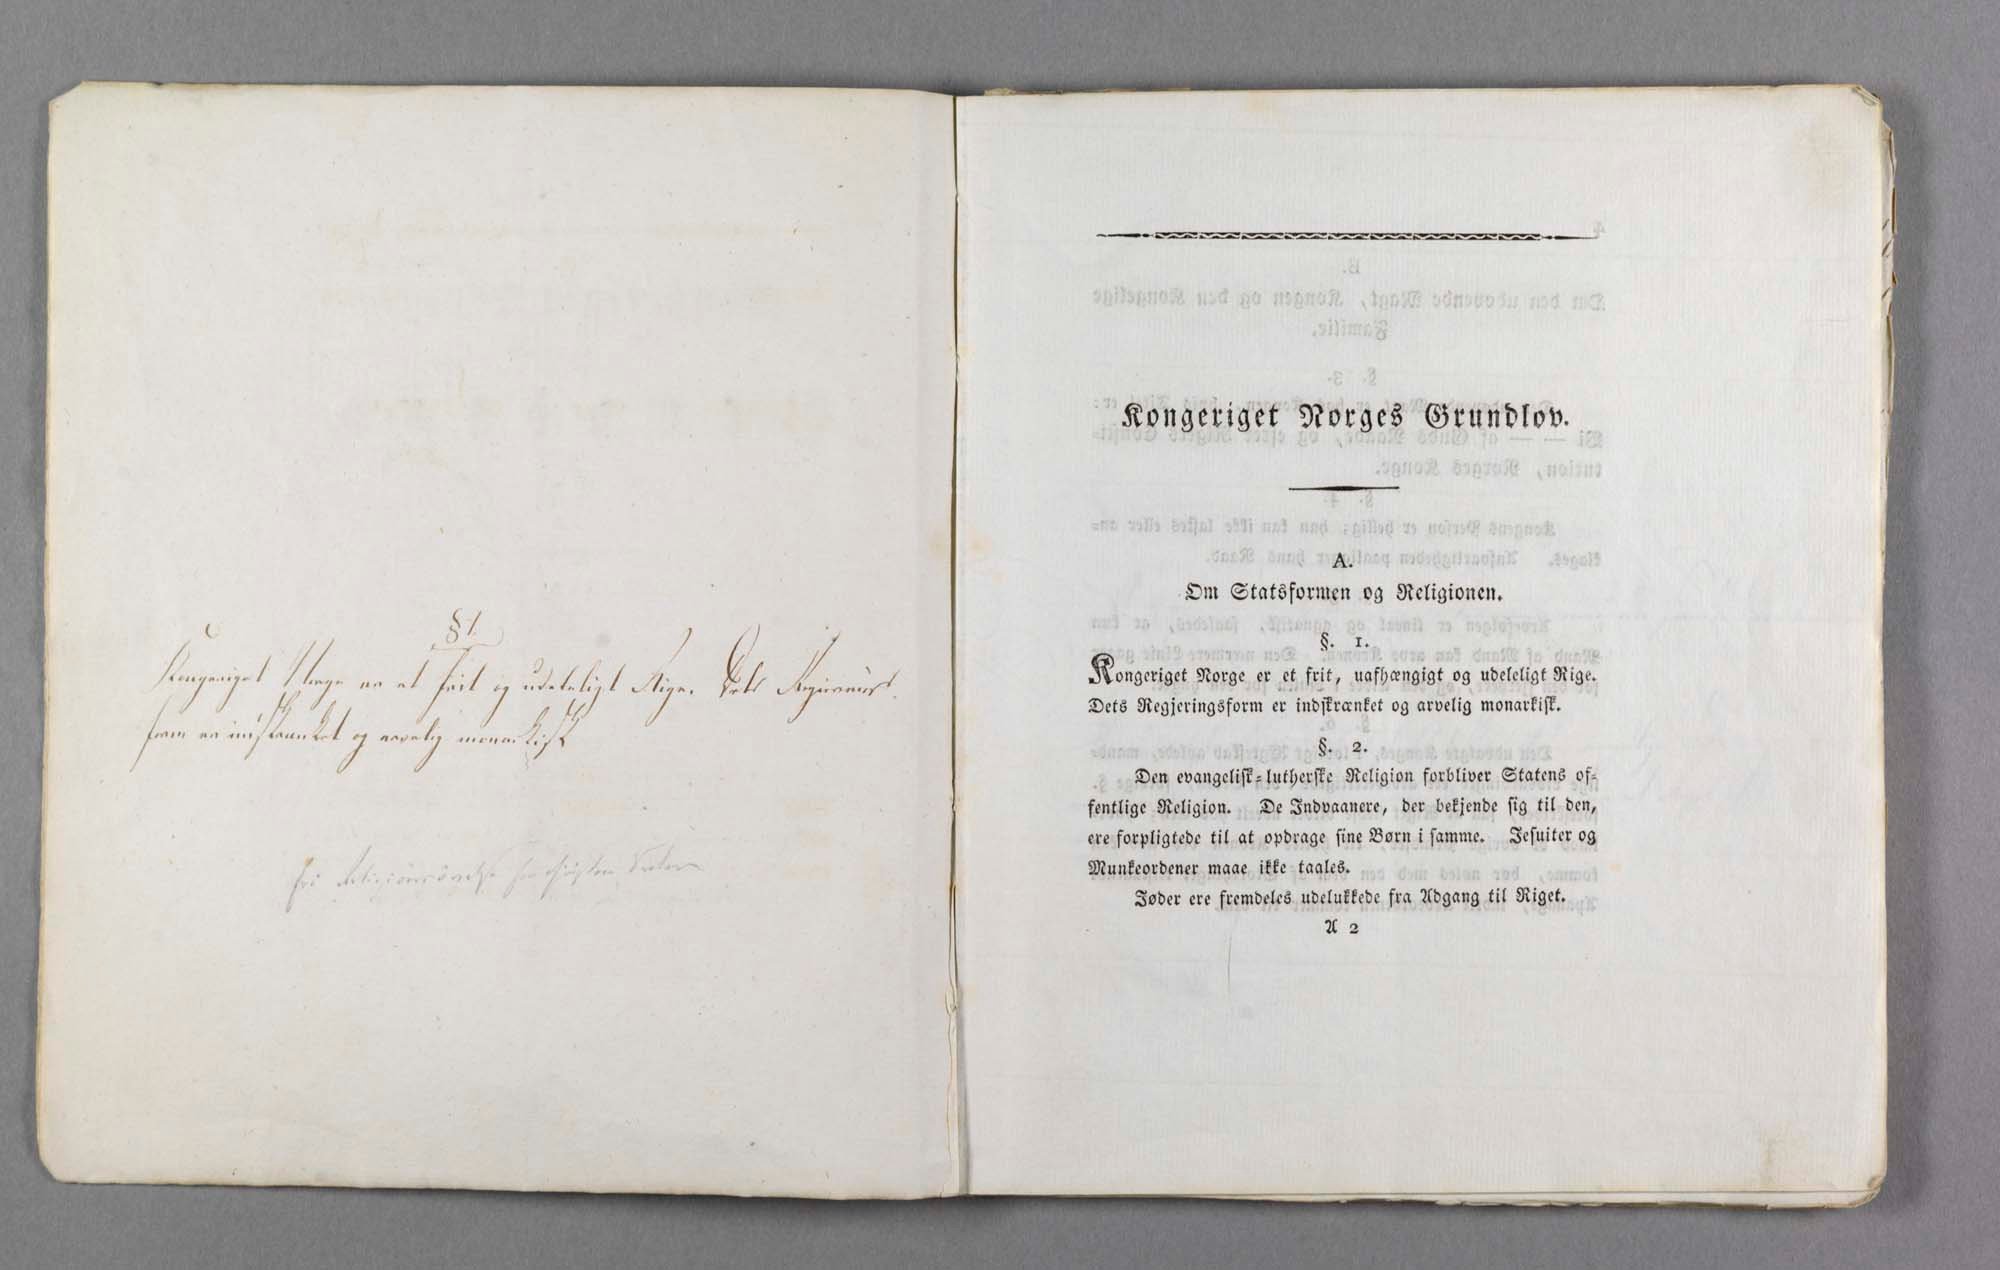 § 1.
Kongeriget Norge er et frit og udeleligt Rige. Dets Regierings-
form er indskrænket og arvelig monarkisk
fri Religionsövelse for christne Secter
Kongeriget Norges Grundlov.
A.
Om Statsformen og Religionen.
§. 1.
Kongeriget Norge er et frit, uafhængigt og udeleligt Rige.
Dets Regjeringsform er indskrænket og arvelig monarkisk.
§. 2.
Den evangelisk-lutherske Religion forbliver Statens of-
fentlige Religion. De Indvaanere, der bekjende sig til den,
ere forpligtede til at opdrage sine Børn i samme. Jesuiter og
Munkeordener maae ikke taales.
Jøder ere fremdeles udelukkede fra Adgang til Riget.
A 2